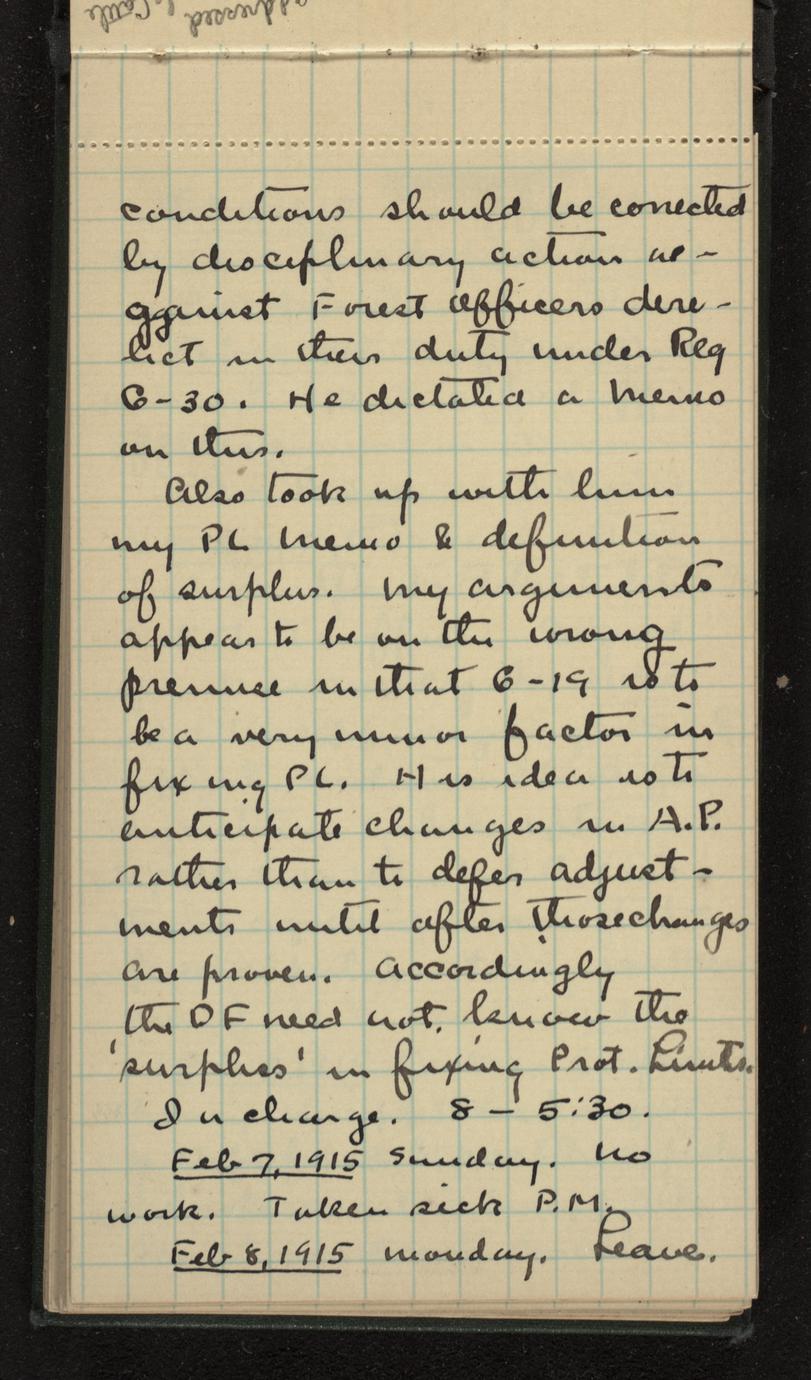 addressed
Cattle
conditions should be corrected
by disciplinary action a-
gainst Forest Officers dere-
lict in their duty under Reg
G-30. He dictated a memo
on this.
Also took up with him
my PL memo & definition
of surplus. My arguments
appear to be on the wrong
premise in that G-19 is to
be a very minor factor in
fixing PL. His idea is to
anticipate changes in A.P.
rather than to defer adjust-
ments until after those changes
are proven. Accordingly
the DF need not know the
'surplus' in fixing Prot. Limits.
In charge. 8 - 5:30.
Feb 7, 1915 Sunday. No
work. Taken sick P.M.
Feb 8, 1915 Monday. Leave.